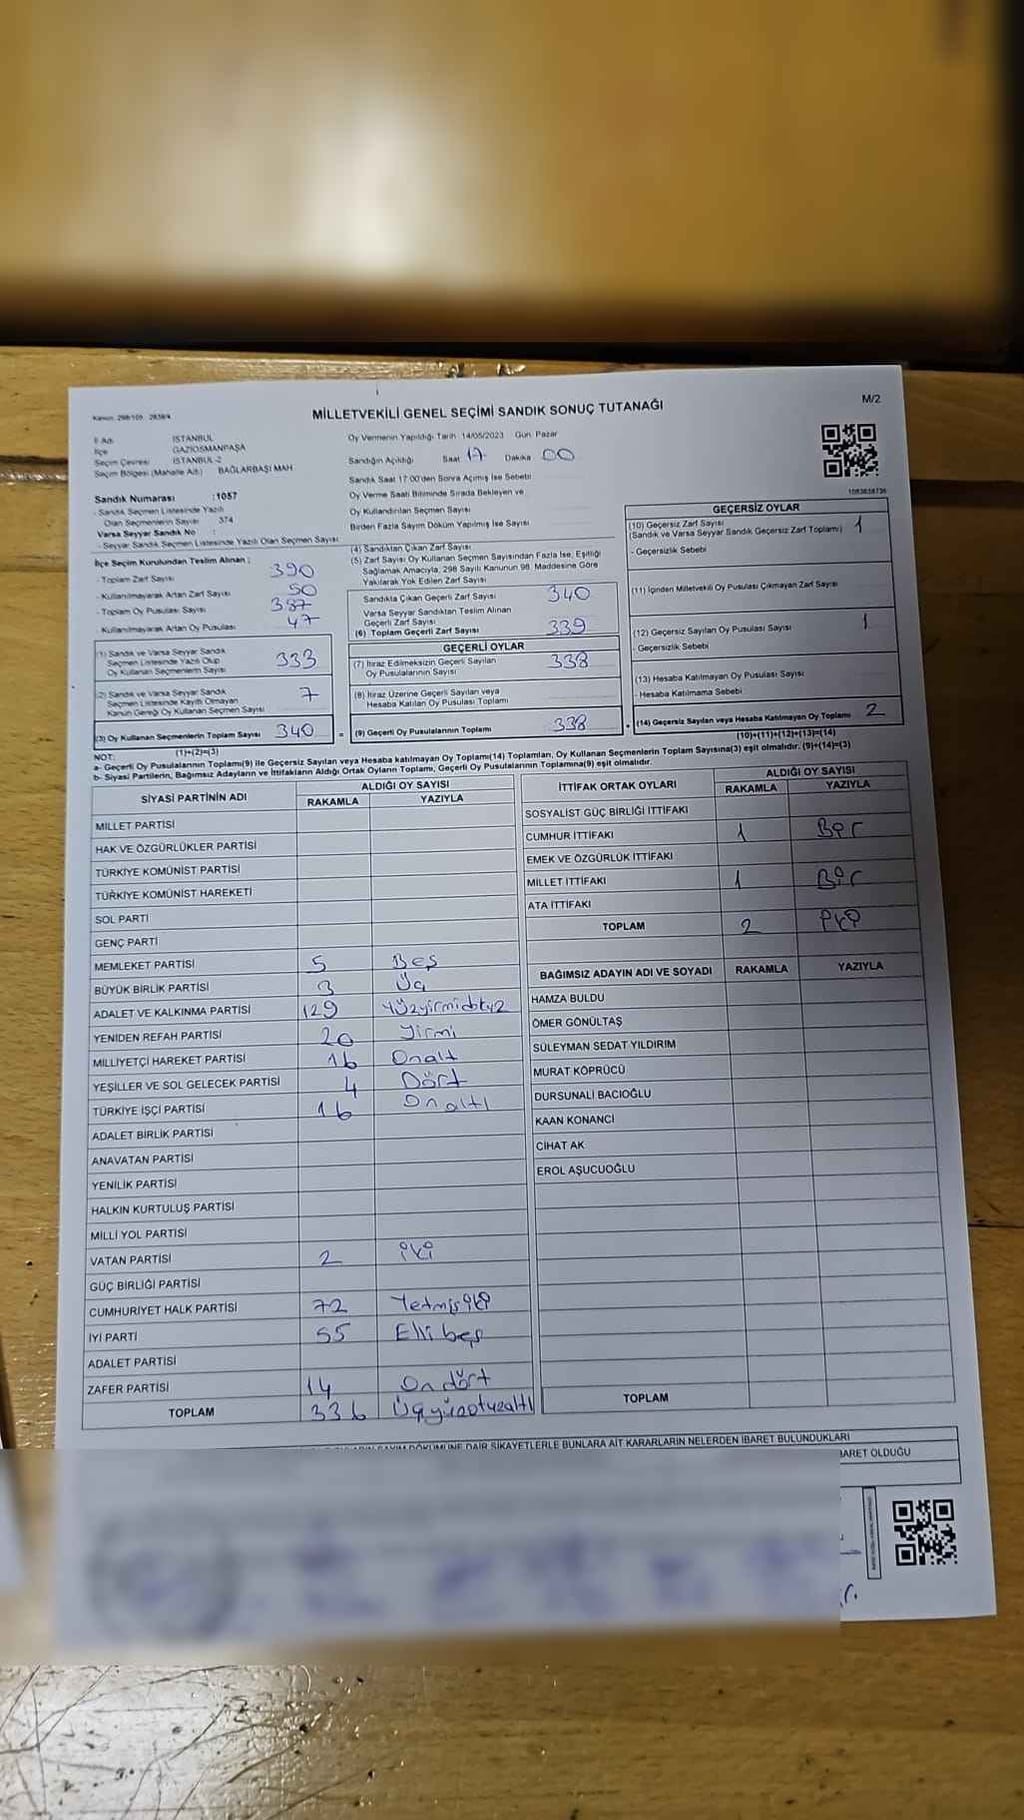 Kanun: 298/105 2839/4
MİLLETVEKİLİ GENEL SEÇİMİ SANDIK SONUÇ TUTANAĞI
M/2
İl Adı İSTANBUL
İlçe GAZİOSMANPAŞA
Seçim Çevresi İSTANBUL-2
Seçim Bölgesi (Mahalle Adı) BAĞLARBAŞI MAH
Sandık Numarası :1057
- Sandık Seçmen Listesinde Yazılı
Olan Seçmenlerin Sayısı 374
Varsa Seyyar Sandık No :
- Seyyar Sandık Seçmen Listesinde Yazılı Olan Seçmen Sayısı
Oy Vermenin Yapıldığı Tarih 14/05/2023 Gün: Pazar
Sandığın Açıldığı Saat 17 Dakika 00
Sandık Saat 17:00'den Sonra Açımış İse Sebebi
Oy Verme Saati Bitiminde Sırada Bekleyen ve
Oy Kullandırılan Seçmen Sayısı
Birden Fazla Sayım Döküm Yapılmış İse Sayısı
İlçe Seçim Kurulundan Teslim Alınan :
- Toplam Zarf Sayısı 390
- Kullanılmayarak Artan Zarf Sayısı 50
- Toplam Oy Pusulası Sayısı 387
- Kullanılmayarak Artan Oy Pusulası 47
(1) Sandık ve Varsa Seyyar Sandık
Seçmen Listesinde Yazılı Olup
Oy Kullanan Seçmenlerin Sayısı 333
(2) Sandık ve Varsa Seyyar Sandık
Seçmen Listesinde Kayıtlı Olmayan
Kanun Gereği Oy Kullanan Seçmen Sayısı 7
(3) Oy Kullanan Seçmenlerin Toplam Sayısı 340 =
(1)+(2)=(3)
(4) Sandıktan Çıkan Zarf Sayısı
(5) Zarf Sayısı Oy Kullanan Seçmen Sayısından Fazla İse, Eşitliği
Sağlamak Amacıyla, 298 Sayılı Kanunun 98. Maddesine Göre
Yakılarak Yok Edilen Zarf Sayısı
Sandıkta Çıkan Geçerli Zarf Sayısı 340
Varsa Seyyar Sandıktan Teslim Alınan
Geçerli Zarf Sayısı
(6) Toplam Geçerli Zarf Sayısı 339
GEÇERLİ OYLAR
(7) İtiraz Edilmeksizin Geçerli Sayılan
Oy Pusulalarının Sayısı 338
(8) İtiraz Üzerine Geçerli Sayılan veya
Hesaba Katılan Oy Pusulası Toplamı
(9) Geçerli Oy Pusulalarının Toplamı 338
GEÇERSİZ OYLAR
(10) Geçersiz Zarf Sayısı
(Sandık ve Varsa Seyyar Sandık Geçersiz Zarf Toplamı) 1
- Geçersizlik Sebebi
(11) İçinden Milletvekili Oy Pusulası Çıkmayan Zarf Sayısı
(12) Geçersiz Sayılan Oy Pusulası Sayısı 1
- Geçersizlik Sebebi
(13) Hesaba Katılmayan Oy Pusulası Sayısı
- Hesaba Katılmama Sebebi
(14) Geçersiz Sayılan veya Hesaba Katılmayan Oy Toplamı 2
(10)+(11)+(12)+(13)=(14)
NOT:
a- Geçerli Oy Pusulalarının Toplamı(9) ile Geçersiz Sayılan veya Hesaba katılmayan Oy Toplamı(14) Toplamları, Oy Kullanan Seçmenlerin Toplam Sayısına(3) eşit olmalıdır. (9)+(14)=(3)
b- Siyasi Partilerin, Bağımsız Adayların ve İttifakların Aldığı Ortak Oyların Toplamı, Geçerli Oy Pusulalarının Toplamına(9) eşit olmalıdır.
SİYASİ PARTİNİN ADI ALDIĞI OY SAYISI
RAKAMLA YAZIYLA
MİLLET PARTİSİ
HAK VE ÖZGÜRLÜKLER PARTİSİ
TÜRKİYE KOMÜNİST PARTİSİ
TÜRKİYE KOMÜNİST HAREKETİ
SOL PARTİ
GENÇ PARTİ
MEMLEKET PARTİSİ 5 Beş
BÜYÜK BİRLİK PARTİSİ 3 Üç
ADALET VE KALKINMA PARTİSİ 129 Yüzyirmidokuz
YENİDEN REFAH PARTİSİ 20 Yirmi
MİLLİYETÇİ HAREKET PARTİSİ 16 Onaltı
YEŞİLLER VE SOL GELECEK PARTİSİ 4 Dört
TÜRKİYE İŞÇİ PARTİSİ 16 Onaltı
ADALET BİRLİK PARTİSİ
ANAVATAN PARTİSİ
YENİLİK PARTİSİ
HALKIN KURTULUŞ PARTİSİ
MİLLİ YOL PARTİSİ
VATAN PARTİSİ 2 iki
GÜÇ BİRLİĞİ PARTİSİ
CUMHURİYET HALK PARTİSİ 72 Yetmişiki
İYİ PARTİ 55 Elli beş
ADALET PARTİSİ
ZAFER PARTİSİ 14 On dört
TOPLAM 336 Üçyüzotuzaltı
İTTİFAK ORTAK OYLARI ALDIĞI OY SAYISI
RAKAMLA YAZIYLA
SOSYALİST GÜÇ BİRLİĞİ İTTİFAKI
CUMHUR İTTİFAKI 1 Bir
EMEK VE ÖZGÜRLÜK İTTİFAKI
MİLLET İTTİFAKI 1 Bir
ATA İTTİFAKI
TOPLAM 2 iki
BAĞIMSIZ ADAYIN ADI VE SOYADI RAKAMLA YAZIYLA
HAMZA BULDU
ÖMER GÖNÜLTAŞ
SÜLEYMAN SEDAT YILDIRIM
MURAT KÖPRÜCÜ
DURSUNALİ BACIOĞLU
KAAN KONANCI
CİHAT AK
EROL AŞUCUOĞLU
TOPLAM
DAİR ŞİKAYETLERLE BUNLARA AİT KARARLARIN NELERDEN İBARET BULUNDUKLARI
OLDUĞU